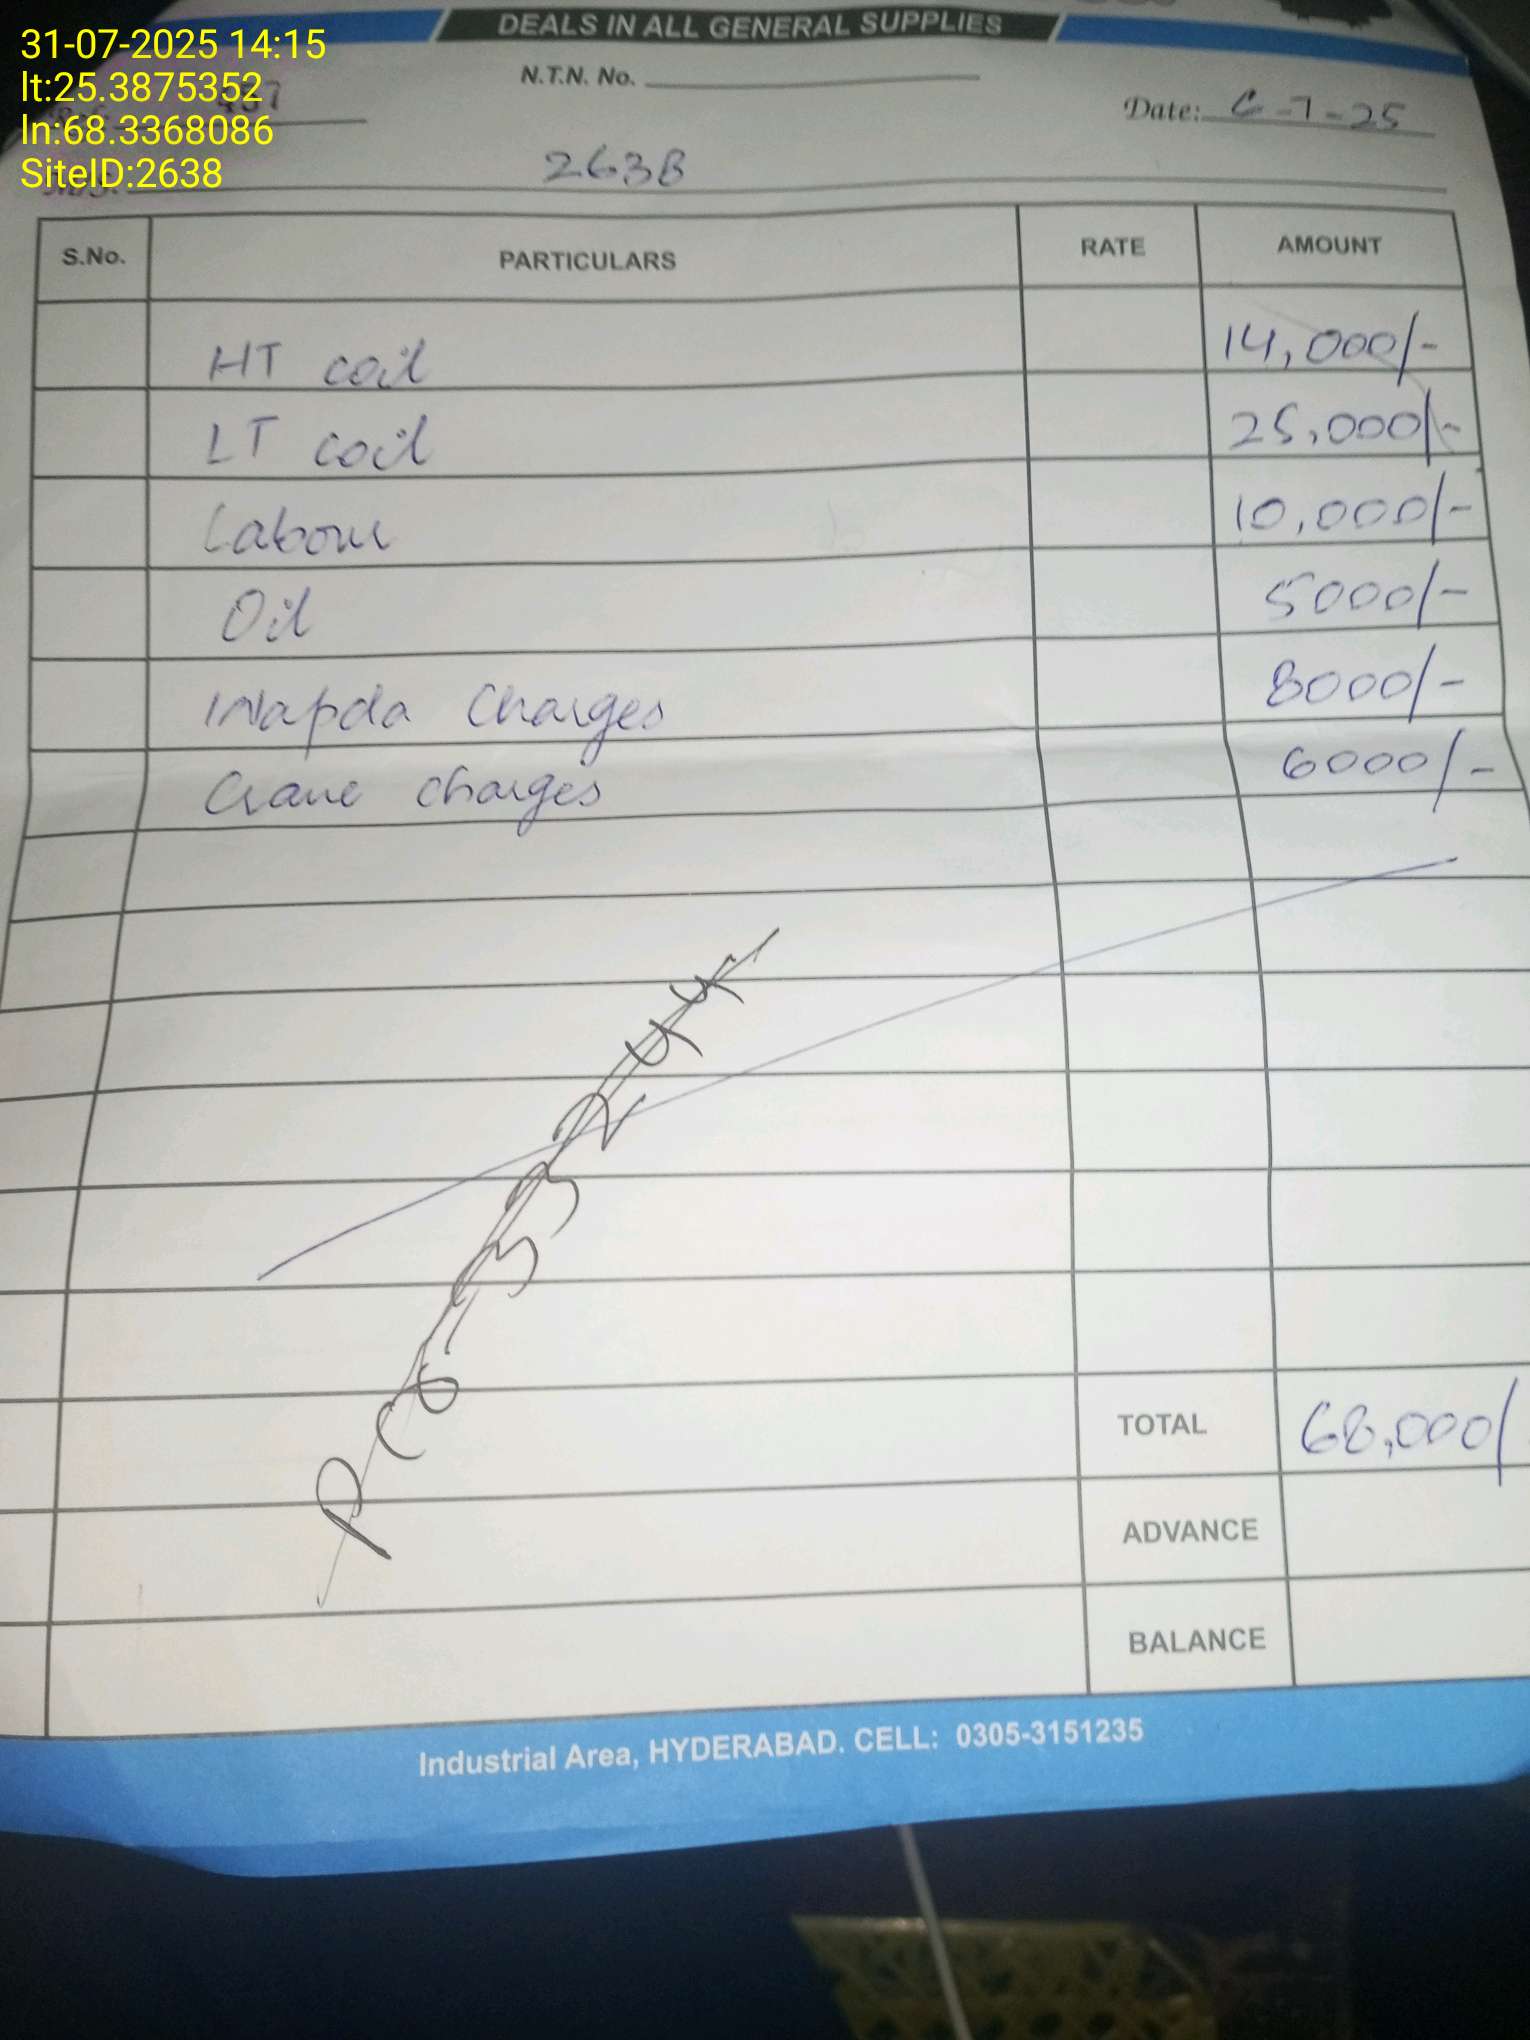 DEALS IN ALL GENERAL SUPPLIES
31-07-2025 14:15
lt:25.3875352
ln:68.3368086
SiteID:2638
N.T.N. No.
Date: 6-7-25
2638
S.No. PARTICULARS RATE AMOUNT
HT coil 14,000/-
LT coil 25,000/-
Labour 10,000/-
Oil 5000/-
Wapda Charges 8000/-
Crane charges 6000/-
TOTAL 68,000/
ADVANCE
BALANCE
Industrial Area, HYDERABAD. CELL: 0305-3151235